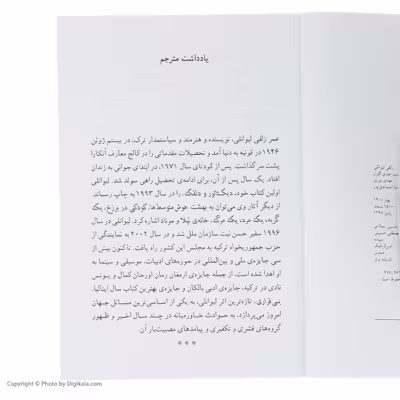 یادداشت مترجم
عمر زلفی لیوانلی، نویسنده و هنرمند و سیاستمدار ترک، در بیستم ژوئن
۱۹۴۶ در قونیه به دنیا آمد و تحصیلات مقدماتی را در کالج معارف آنکارا
پشت سر گذاشت. پس از کودتای سال ۱۹۷۱، در ابتدای جوانی به زندان
افتاد. یک سال پس از آن، برای ادامه‌ی تحصیل راهی سوئد شد. لیوانلی
اولین کتاب خود، دیکتاتور و دلقک را در سال ۱۹۹۳ به چاپ رساند.
از دیگر آثار وی می‌توان به بهشت هوش‌متوسط‌ها، کودکی در برزخ، یک
گربه، یک مرد، یک مرگ، خانه‌ی لیلا و سرناد اشاره کرد. لیوانلی در سال
۱۹۹۶ سفیر حسن نیت سازمان ملل شد و در سال ۲۰۰۲ به نمایندگی از
حزب جمهوریخواه ترکیه به مجلس این کشور راه یافت. تاکنون بیش از
سی جایزه‌ی ملی و بین‌المللی در حوزه‌های ادبیات، موسیقی و سینما به
او اهدا شده است، از جمله جایزه‌ی ارمغان رمان اورخان کمال و یونس
نادی در ترکیه، جایزه‌ی ادبی بالکان و جایزه‌ی بهترین کتاب سال ایتالیا.
بی‌قراری، تازه‌ترین اثر لیوانلی، به یکی از اساسی‌ترین مسائل جهان
امروز می‌پردازد، به حوادث خاورمیانه در چند سال اخیر و ظهور
گروه‌های قشری و تکفیری و پیامدهای مصیبت‌بار آن.
Copyright © Photo by Digikala.com